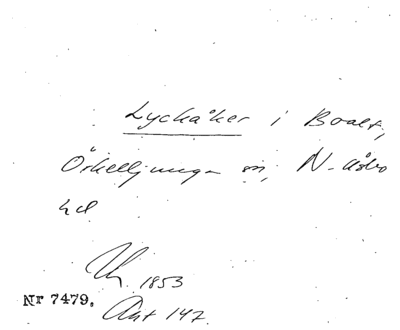 Lyckåker i Boalt,
Örkelljunga sn, N. Åsbo
hd
1853
Nr 7479.
Ant 147